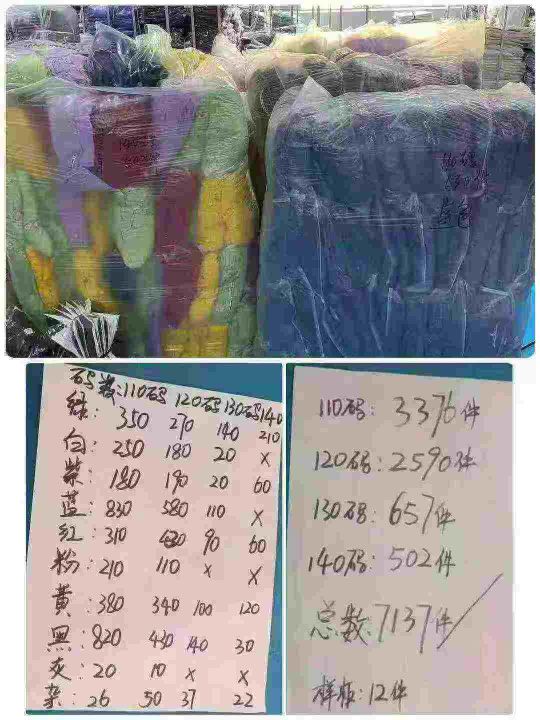 110码
830件
蓝色
码数:110码 120码 130码 140
绿: 350 270 140 210
白: 250 180 20 x
紫: 180 190 20 60
蓝: 830 580 110 x
红: 310 430 90 60
粉: 210 110 x x
黄: 380 340 100 120
黑: 820 430 140 30
灰: 20 10 x x
杂: 26 50 37 22
110码: 3376件
120码: 2590件
130码: 657件
140码: 502件
总数: 7137件
样板: 12件